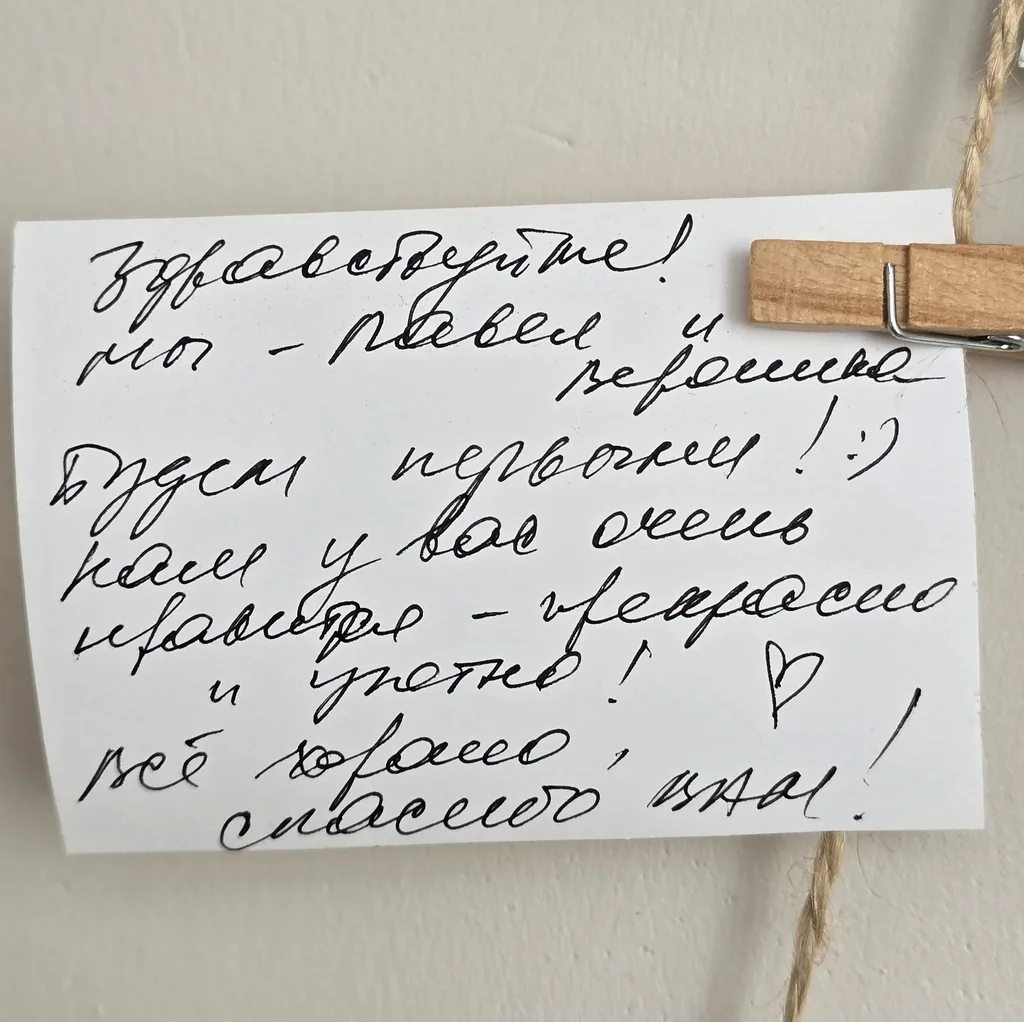 Здравствуйте!
мы - Павел и
Вероника
Будем первыми! :)
нам у вас очень
нравится - прекрасно
и уютно!
всё хорошо,
спасибо ВАМ!